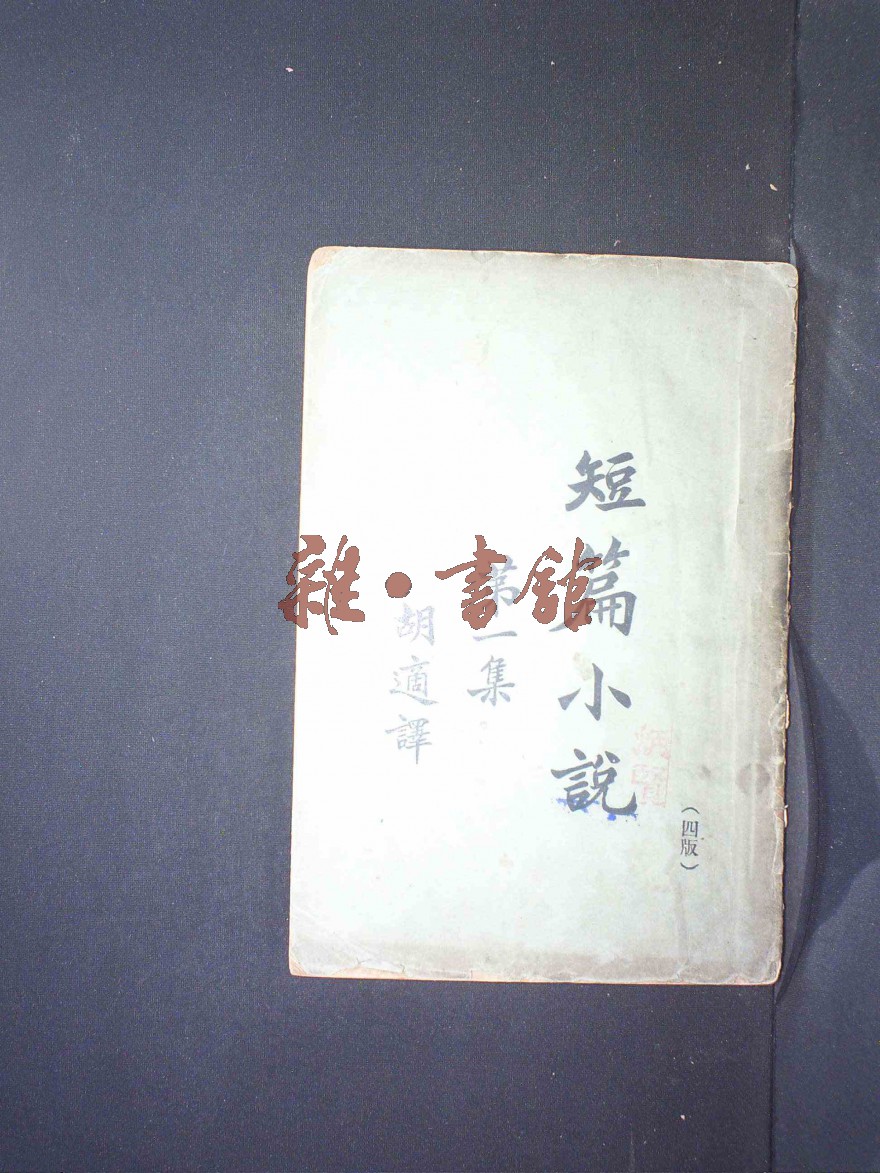 （四版）
短篇小說
第一集
胡適譯
雜·書館